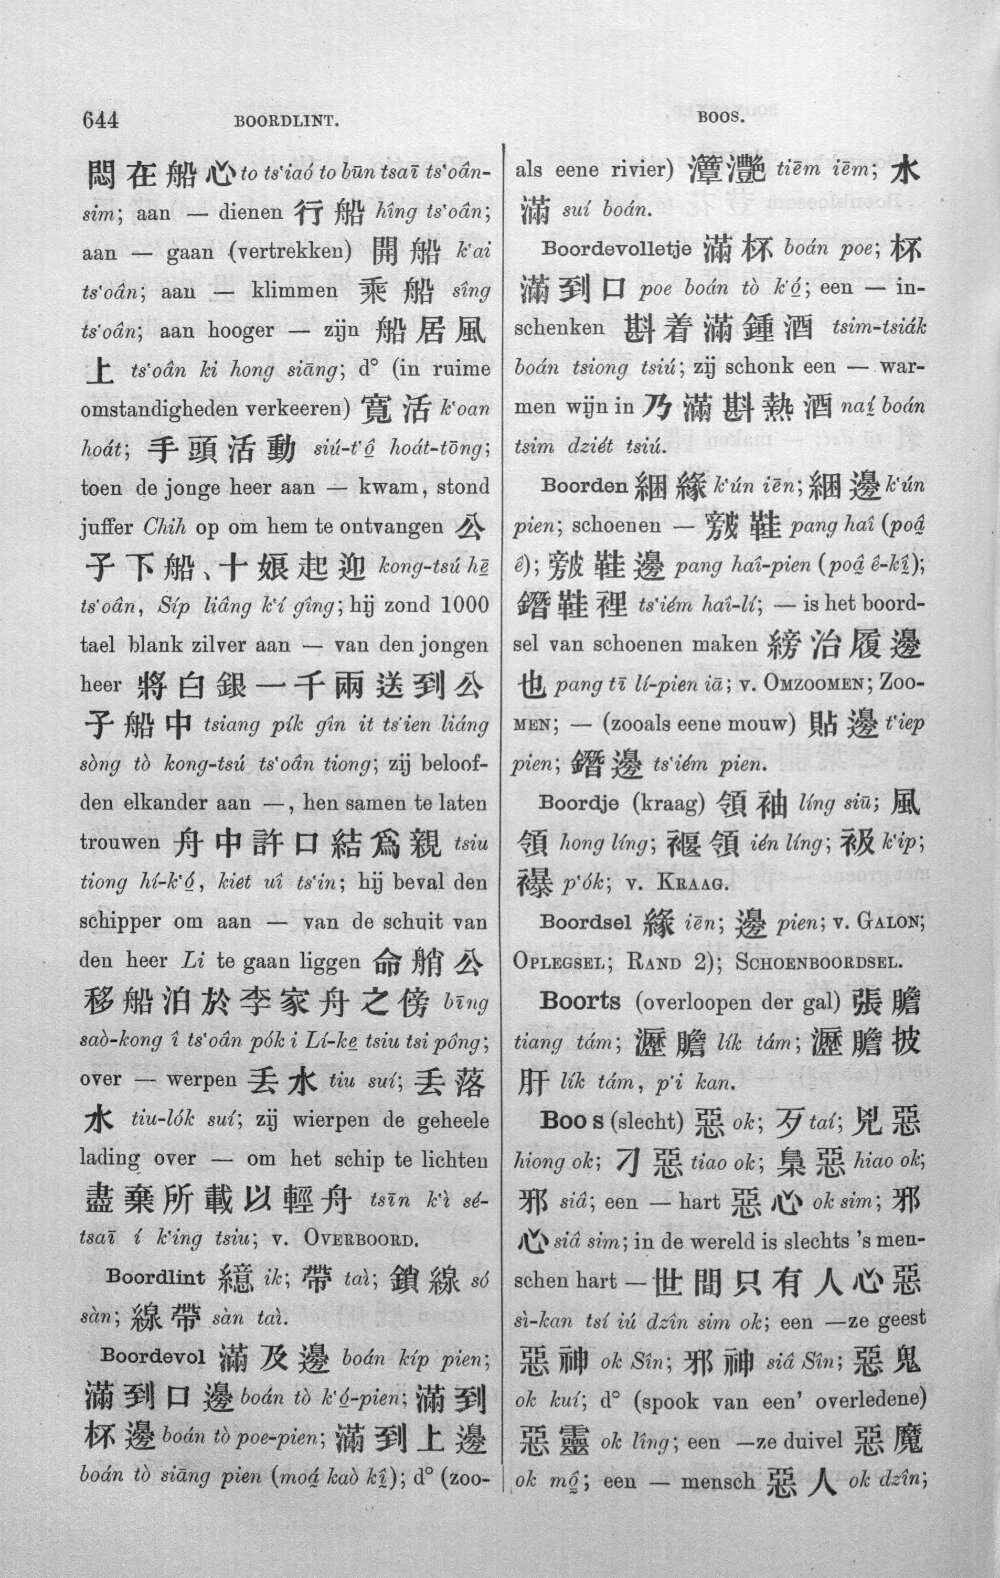 644 BOORDLINT. BOOS.
悶在船心 to ts‘iaó to būn tsaī ts‘oân-
sim; aan — dienen 行船 hîng ts‘oân;
aan — gaan (vertrekken) 開船 k‘ai
ts‘oân; aan — klimmen 乘船 sîng
ts‘oân; aan hooger — zijn 船居風
上 ts‘oân ki hong siāng; d° (in ruime
omstandigheden verkeeren) 寬活 k‘oan
hoát; 手頭活動 siú-t‘ô̤ hoát-tōng;
toen de jonge heer aan — kwam, stond
juffer Chih op om hem te ontvangen 公
子下船、十娘起迎 kong-tsú hē̤
ts‘oân, Síp liâng k‘í gîng; hij zond 1000
tael blank zilver aan — van den jongen
heer 將白銀一千兩送到公
子船中 tsiang pík gîn it ts‘ien liáng
sòng tò kong-tsú ts‘oân tiong; zij beloof-
den elkander aan —, hen samen te laten
trouwen 舟中許口結爲親 tsiu
tiong hí-k‘ó̤, kiet uî ts‘in; hij beval den
schipper om aan — van de schuit van
den heer Li te gaan liggen 命艄公
移船泊於李家舟之傍 bīng
saò-kong î ts‘oân pók i Lí-ke̤ tsiu tsi pông;
over — werpen 丢水 tiu suí; 丢落
水 tiu-lók suí; zij wierpen de geheele
lading over — om het schip te lichten
盡棄所載以輕舟 tsīn k‘ì sé-
tsaī í k‘ing tsiu; v. OVERBOORD.
Boordlint 繶 ik; 帶 taì; 鎖線 só
sàn; 線帶 sàn taì.
Boordevol 滿及邊 boán kíp pien;
滿到口邊 boán tò k‘ó̤-pien; 滿到
杯邊 boán tò poe-pien; 滿到上邊
boán tò siāng pien (moá̤ kaò kî̤); d° (zoo-
als eene rivier) 灊灧 tiēm iēm; 水
滿 suí boán.
Boordevolletje 滿杯 boán poe; 杯
滿到口 poe boán tò k‘ó̤; een — in-
schenken 斟着滿鍾酒 tsim-tsiák
boán tsiong tsiú; zij schonk een — war-
men wijn in 乃滿斟熱酒 naí̤ boán
tsim dziét tsiú.
Boorden 綑緣 k‘ún iēn; 綑邊 k‘ún
pien; schoenen — 鞋 pang haî (poâ̤
ê); 鞋邊 pang haî-pien (poâ̤ ê-kî̤);
鞋裡 ts‘iém haî-lí; — is het boord-
sel van schoenen maken 縍治履邊
也 pang tī lí-pien iā; v. OMZOOMEN; ZOO-
MEN; — (zooals eene mouw) 貼邊 t‘iep
pien; 邊 ts‘iém pien.
Boordje (kraag) 領袖 líng siū; 風
領 hong líng; 褗領 ién líng; 衱 k‘ip;
襮 p‘ók; v. KRAAG.
Boordsel 緣 iēn; 邊 pien; v. GALON;
OPLEGSEL; RAND 2); SCHOENBOORDSEL.
Boorts (overloopen der gal) 張膽
tiang tám; 瀝膽 lík tám; 瀝膽披
肝 lík tám, p‘i kan.
Boos (slecht) 惡 ok; 歹 taí; 兇惡
hiong ok; 刁惡 tiao ok; 梟惡 hiao ok;
邪 siâ; een — hart 惡心 ok sim; 邪
心 siâ sim; in de wereld is slechts ’s men-
schen hart — 世間只有人心惡
sì-kan tsí iú dzîn sim ok; een —ze geest
惡神 ok Sîn; 邪神 siâ Sîn; 惡鬼
ok kuí; d° (spook van een’ overledene)
惡靈 ok lîng; een —ze duivel 惡魔
ok mô̤; een — mensch 惡人 ok dzîn;